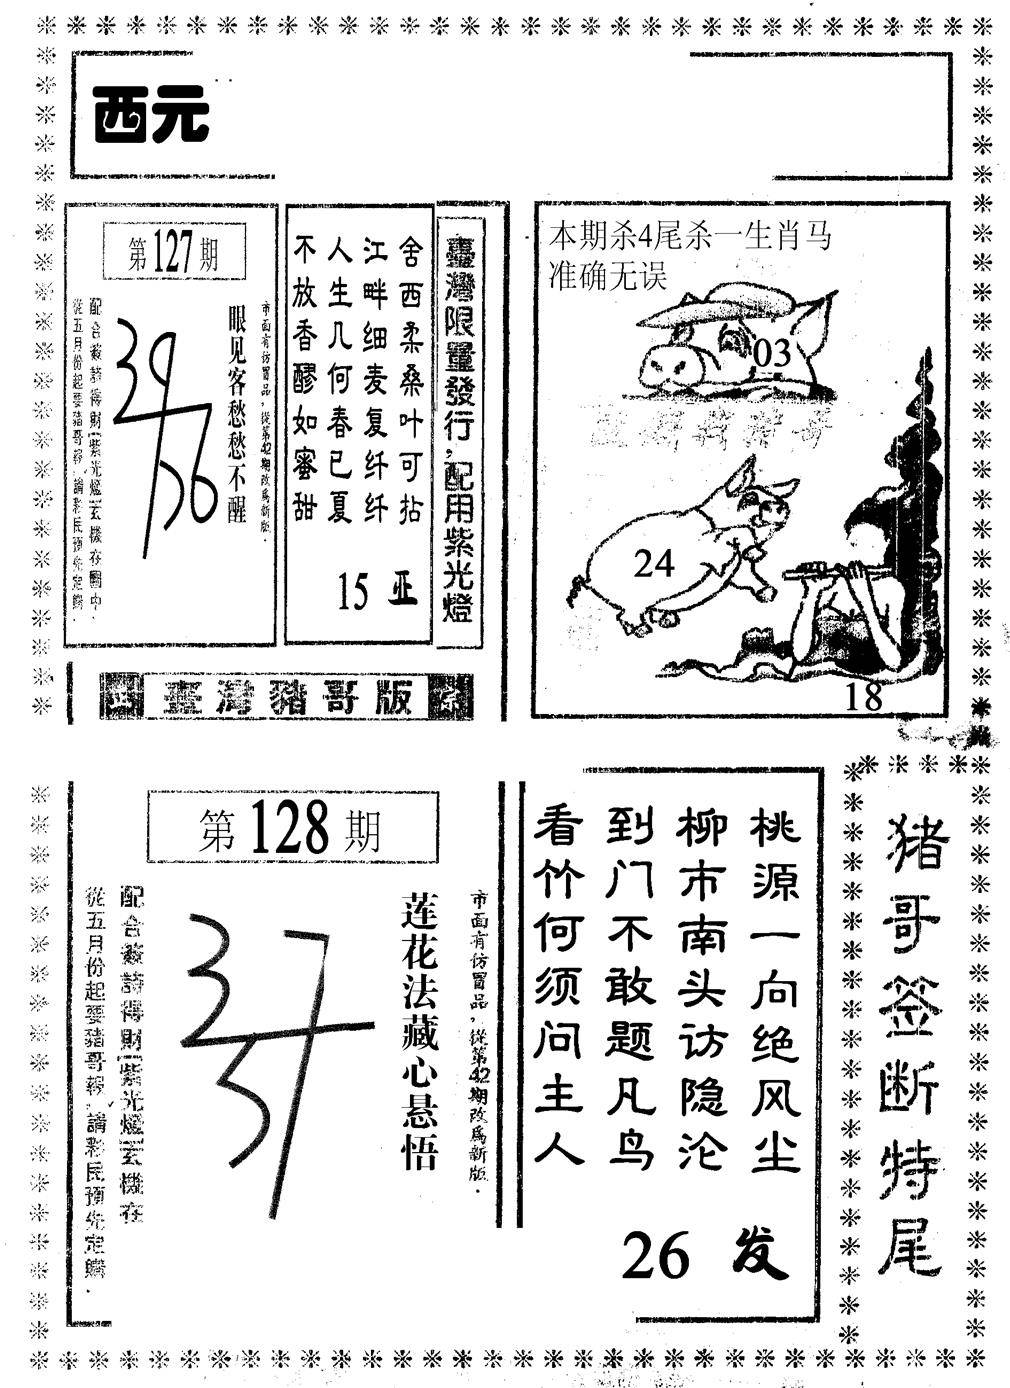 西元
第127期
市面有仿冒品，從第42期改為新版．
眼见客愁愁不醒
39
56
從五月份起要豬哥報，請彩民預先定購．
舍西柔桑叶可拈
江畔细麦复纤纤
人生几何春已夏
不放香醪如蜜甜
15
臺灣限量發行，配用紫光燈
臺灣豬哥版
本期杀4尾杀一生肖马
准确无误
03
24
18
第128期
市面有仿冒品，從第42期改為新版．
莲花法藏心悬悟
37
從五月份起要豬哥報，請彩民預先定購．
桃源一向绝风尘
柳市南头访隐沦
到门不敢题凡鸟
看竹何须问主人
26 发
猪哥签断特尾